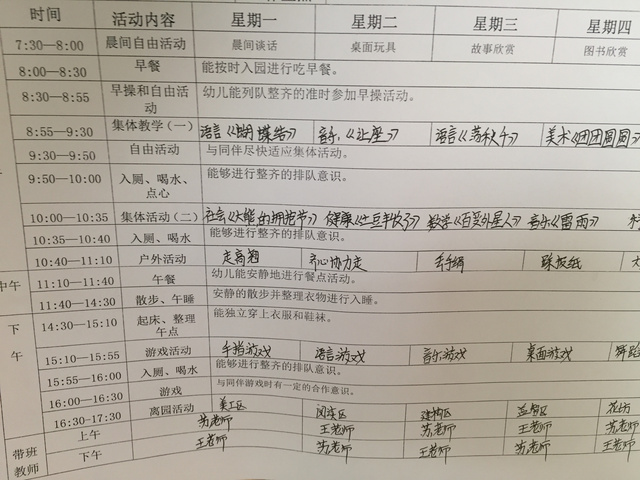 时间 活动内容 星期一 星期二 星期三 星期四
7:30—8:00 晨间自由活动 晨间谈话 桌面玩具 故事欣赏 图书欣赏
8:00—8:30 早餐 能按时入园进行吃早餐。
8:30—8:55 早操和自由活动 幼儿能列队整齐的准时参加早操活动。
8:55—9:30 集体教学（一） 语言《蝴蝶结》 音乐《让座》 语言《荡秋千》 美术《团团圆圆》
9:30—9:50 自由活动 与同伴尽快适应集体活动。
9:50—10:00 入厕、喝水、点心 能够进行整齐的排队意识。
10:00—10:35 集体活动（二） 社会《大熊的拥抱节》 健康 数学《百变外星人》 音乐《雷雨》
10:35—10:40 入厕、喝水 能够进行整齐的排队意识。
10:40—11:10 户外活动 走高翘 齐心协力走 丢手绢 踩报纸
中午 11:10—11:40 午餐 幼儿能安静地进行餐点活动。
11:40—14:30 散步、午睡 安静的散步并整理衣物进行入睡。
下午 14:30—15:10 起床、整理午点 能独立穿上衣服和鞋袜。
15:10—15:55 游戏活动 手指游戏 语言游戏 音乐游戏 桌面游戏 舞蹈
15:55—16:00 入厕、喝水 能够进行整齐的排队意识。
16:00—16:30 游戏 与同伴游戏时有一定的合作意识。
16:30-17:30 离园活动 美工区 阅读区 建构区 益智区 花坊
带班教师 上午 苏老师 王老师 苏老师 王老师 苏老师
下午 王老师 苏老师 王老师 苏老师 王老师